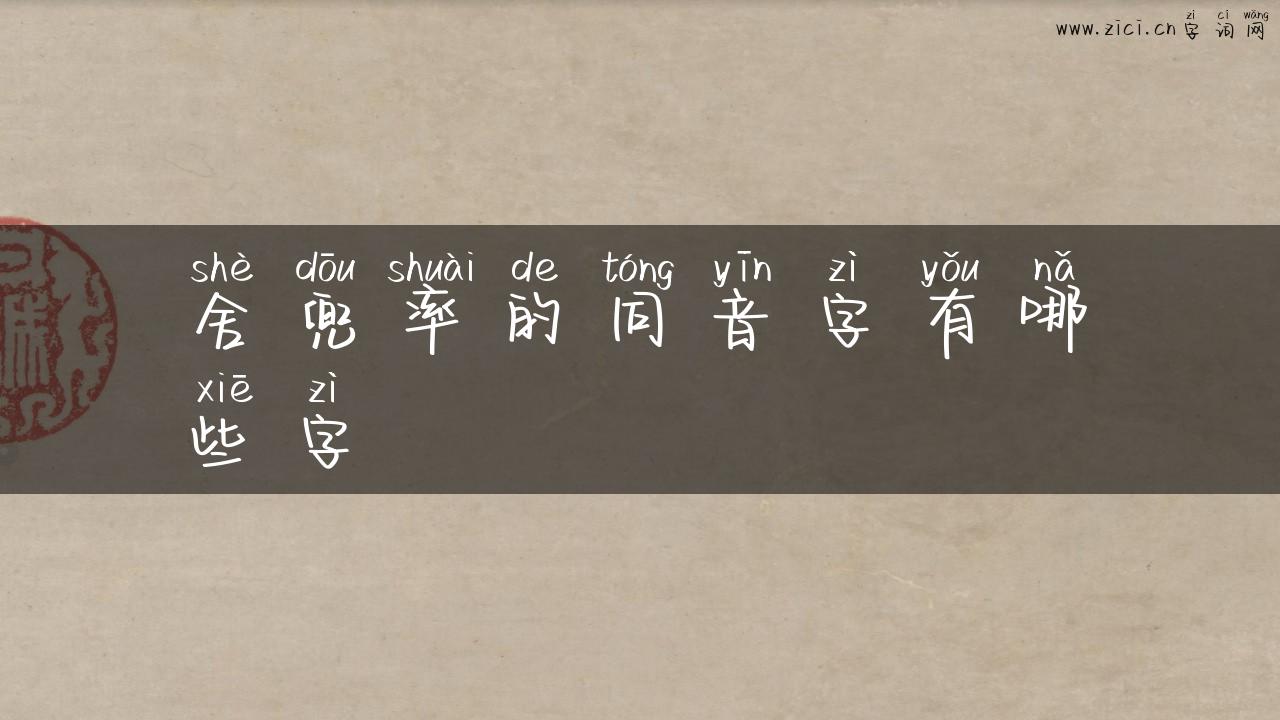 zì cí wǎng
www.zici.cn字词网
shè dōu shuài de tóng yīn zì yǒu nǎ
舍兜率的同音字有哪
xiē zì
些字